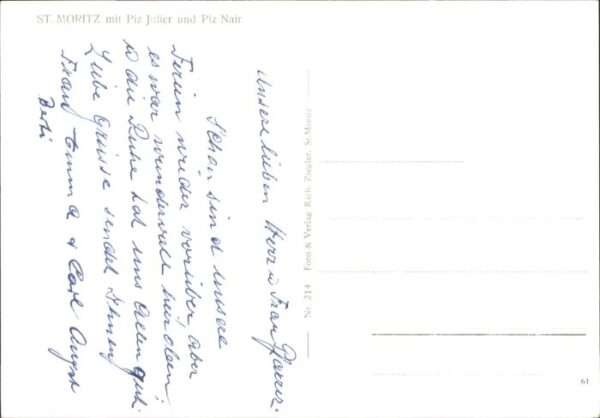 ST. MORITZ mit Piz Julier und Piz Nair
Unsere lieben Herr u Frau
Schon sind unsere
Ferien wieder vorüber, aber
es war wundervoll
u die Ruhe hat uns allen gut.
Liebe Grüsse sendet Ihnen
Franz Emma & Carl August
Nr. 214 Foto & Verlag Rich. Ziegler, St. Moritz
61